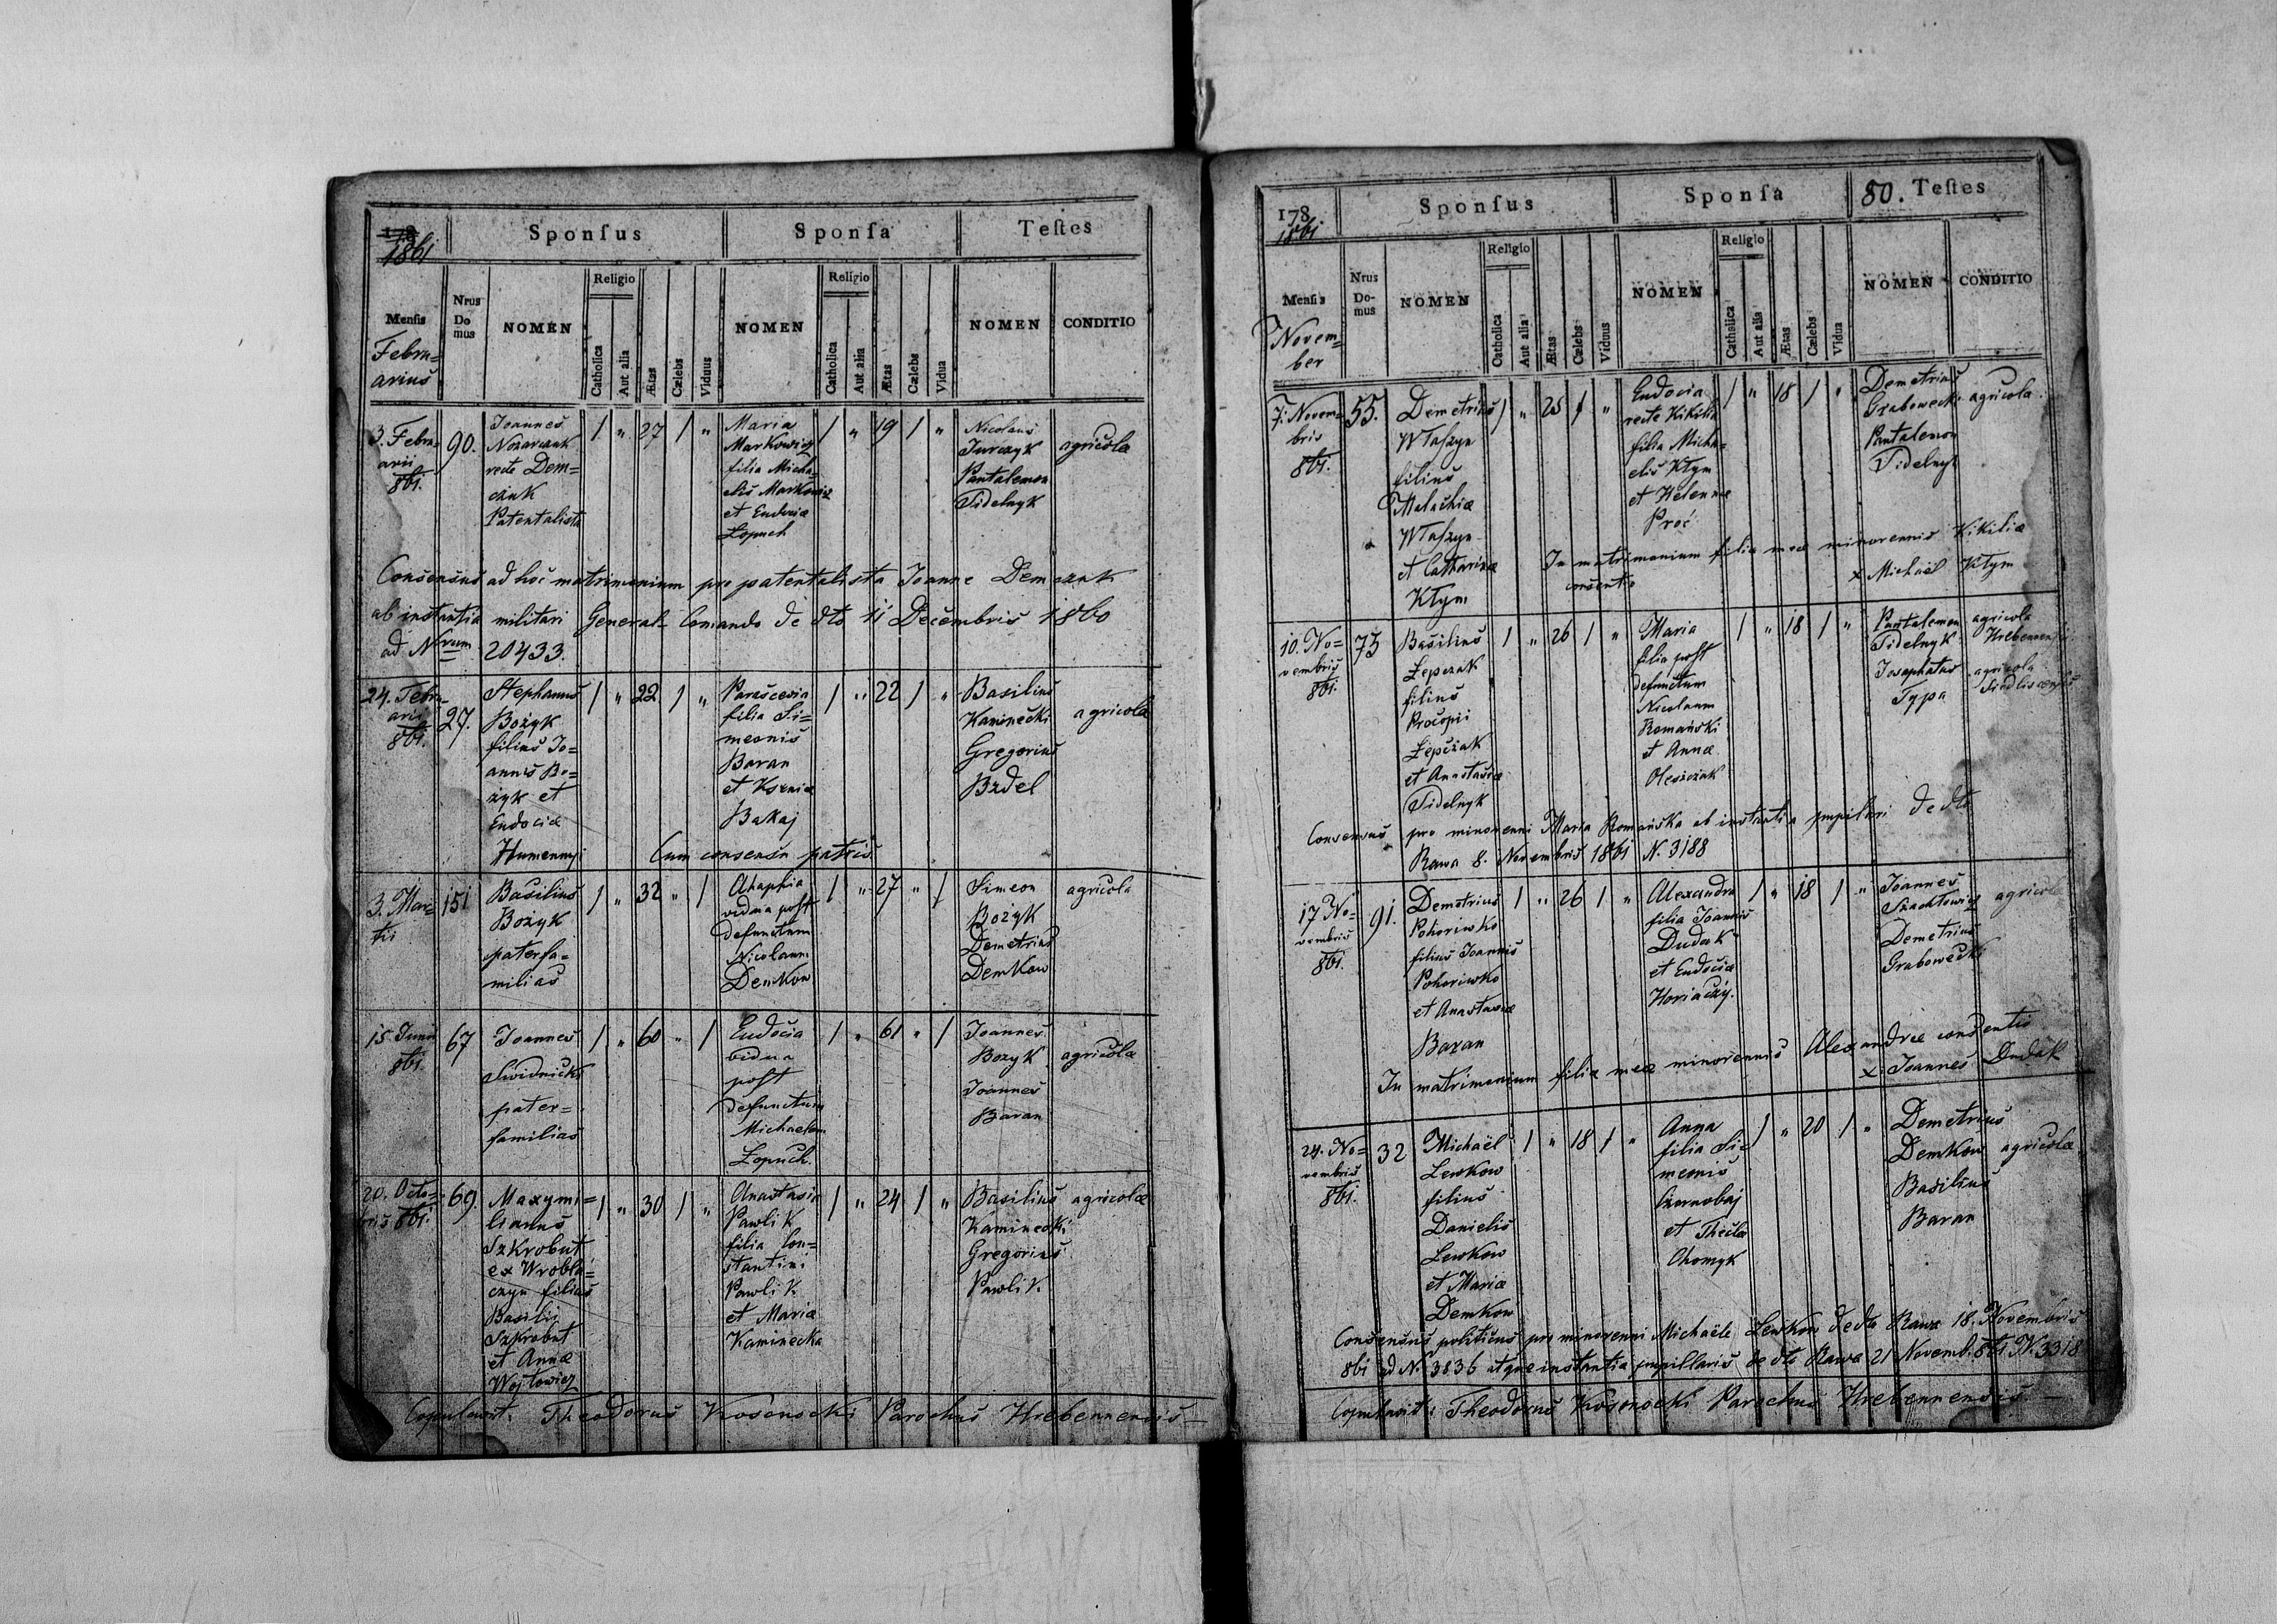 178
1861
Sponſus
Sponſa
Teſtes
Menſis
Nrus
Do
mus
NOMEN
Religio
Catholica
Aut alia
Ætas
Cælebs
Viduus
NOMEN
Religio
Catholica
Aut alia
Ætas
Cælebs
Vidua
NOMEN
CONDITIO
Febru=
arius
3. Febru=
arii
861.
90.
Joannes
recte Dem=
czuk
Patentalista
/ " 27 / "
Maria
Markowicz
filia Micha=
elis Markowicz
et Eudocia
Łopuch
/ " 19 / "
Nicolaus
Jurczyk
Pantalemon
Sidelnyk
agricola
Consensus ad hoc matrimonium pro patentalista Joanne Demczuk
ab instantia militari General-Comando de dto 11 Decembris 1860
ad Nrum 20433.
24. Febru=
arii
861.
27.
Stephanus
Bożyk
filius Jo=
annis Bo=
żyk et
Eudocia
Humennyj
/ " 22 / "
Parascevia
filia Si=
meonis
Baran
et Xenia
Bakaj
/ " 22 / "
Basilius
Kaminecki
Gregorius
Bzdel
agricola
Cum consensu patris
3. Mar=
tii
151
Basilius
Bożyk
paterfa=
milias
/ " 32 " /
Ahaphia
vidua post
defunctum
Nicolaum
Demkow
/ " 27 " /
Simeon
Bożyk
Demetrius
Demkow
agricola
15 Junii
861.
67
Joannes
Swidnicki
pater=
familias
/ " 60 " /
Eudocia
vidua
post
defunctum
Michaelem
Łopuch.
/ " 61 " /
Joannes
Bożyk
Joannes
Baran
agricola
20. Octo=
bris 861.
69.
Maxymi=
lianus
Szkrobut
ex Wrobla=
czyn filius
Basilii
Szkrobut
et Anna
Wojtowicz
/ " 30 / "
Anastasia
Pawlik
filia Con=
stantini
Pawlik
et Maria
Kaminecka
/ " 24 / "
Basilius
Kaminecki
Gregorius
Pawlik
agricolæ
Copulavit: Theodorus Kosonocki Parochus Hrebennensis
178
1861
Sponſus
Sponſa
80. Teſtes
Menſis
Nrus
Do-
mus
NOMEN
Religio
Catholica
Aut alia
Ætas
Cælebs
Viduus
NOMEN
Religio
Catholica
Aut alia
Ætas
Cælebs
Vidua
NOMEN
CONDITIO
Novem=
ber
7. Novem=
bris
861.
55.
Demetrius
Właszyn
filius
Malachiæ
Właszyn
et Catharinæ
Kłym
/ " / "
Eudocia
recte Kikilia
filia Micha=
elis Kłym
et Helennæ
Proć
/ " 18 / "
Demetrius
Grabowecki
Pantalemon
Sidelnyk
agricola
In matrimonium filiæ meæ minorennis Kikiliæ
consentio
x Michaël Kłym
10. No=
vembris
861.
75
Basilius
Łepczak
filius
Procopii
Łepczak
et Anastasiæ
Sidelnyk
/ " 26 / "
Maria
filia post
defunctum
Nicolaum
Romański
et Annæ
Oleszczak
/ " 18 / "
Pantalemon
Sidelnyk
Josaphatus
Typa
agricola
Hrebennensis
agricola
Consensus pro minorenni Maria Romańska ab instantia pupillari de dto
Rawa 8. Novembris 1861 N. 3188
17 No=
vembris
861.
91.
Demetrius
Pohoriwko
filius Joannis
Pohoriwko
et Anastasiæ
Baran
/ " 26 / "
Alexandra
filia Joannis
Dudek
et Eudociæ
Horiaczy.
/ " 18 / "
Joannes
Szachtowicz
Demetrius
Grabowecki
agricolæ
In matrimonium filiæ meæ minorennis Alexandræ consentio
x Joannes Dudek
24. No=
vembris
861.
32
Michaël
Lewkow
filius
Danielis
Lewkow
et Mariæ
Demkow
/ " 18 / "
Anna
filia Si=
meonis
Czornobaj
et Theclæ
Chomyk
/ " 20 / "
Demetrius
Demkow
Basilius
Baran
agricolæ
Consensus politicus pro minorenni Michaële Lewkow de dto Rawa 18. Novembris
861 ad N. 3836 atque instantia pupillaris de dto Rawa 21 Novemb. 861 N. 3318
Copulavit: Theodorus Kosonocki Parochus Hrebennensis